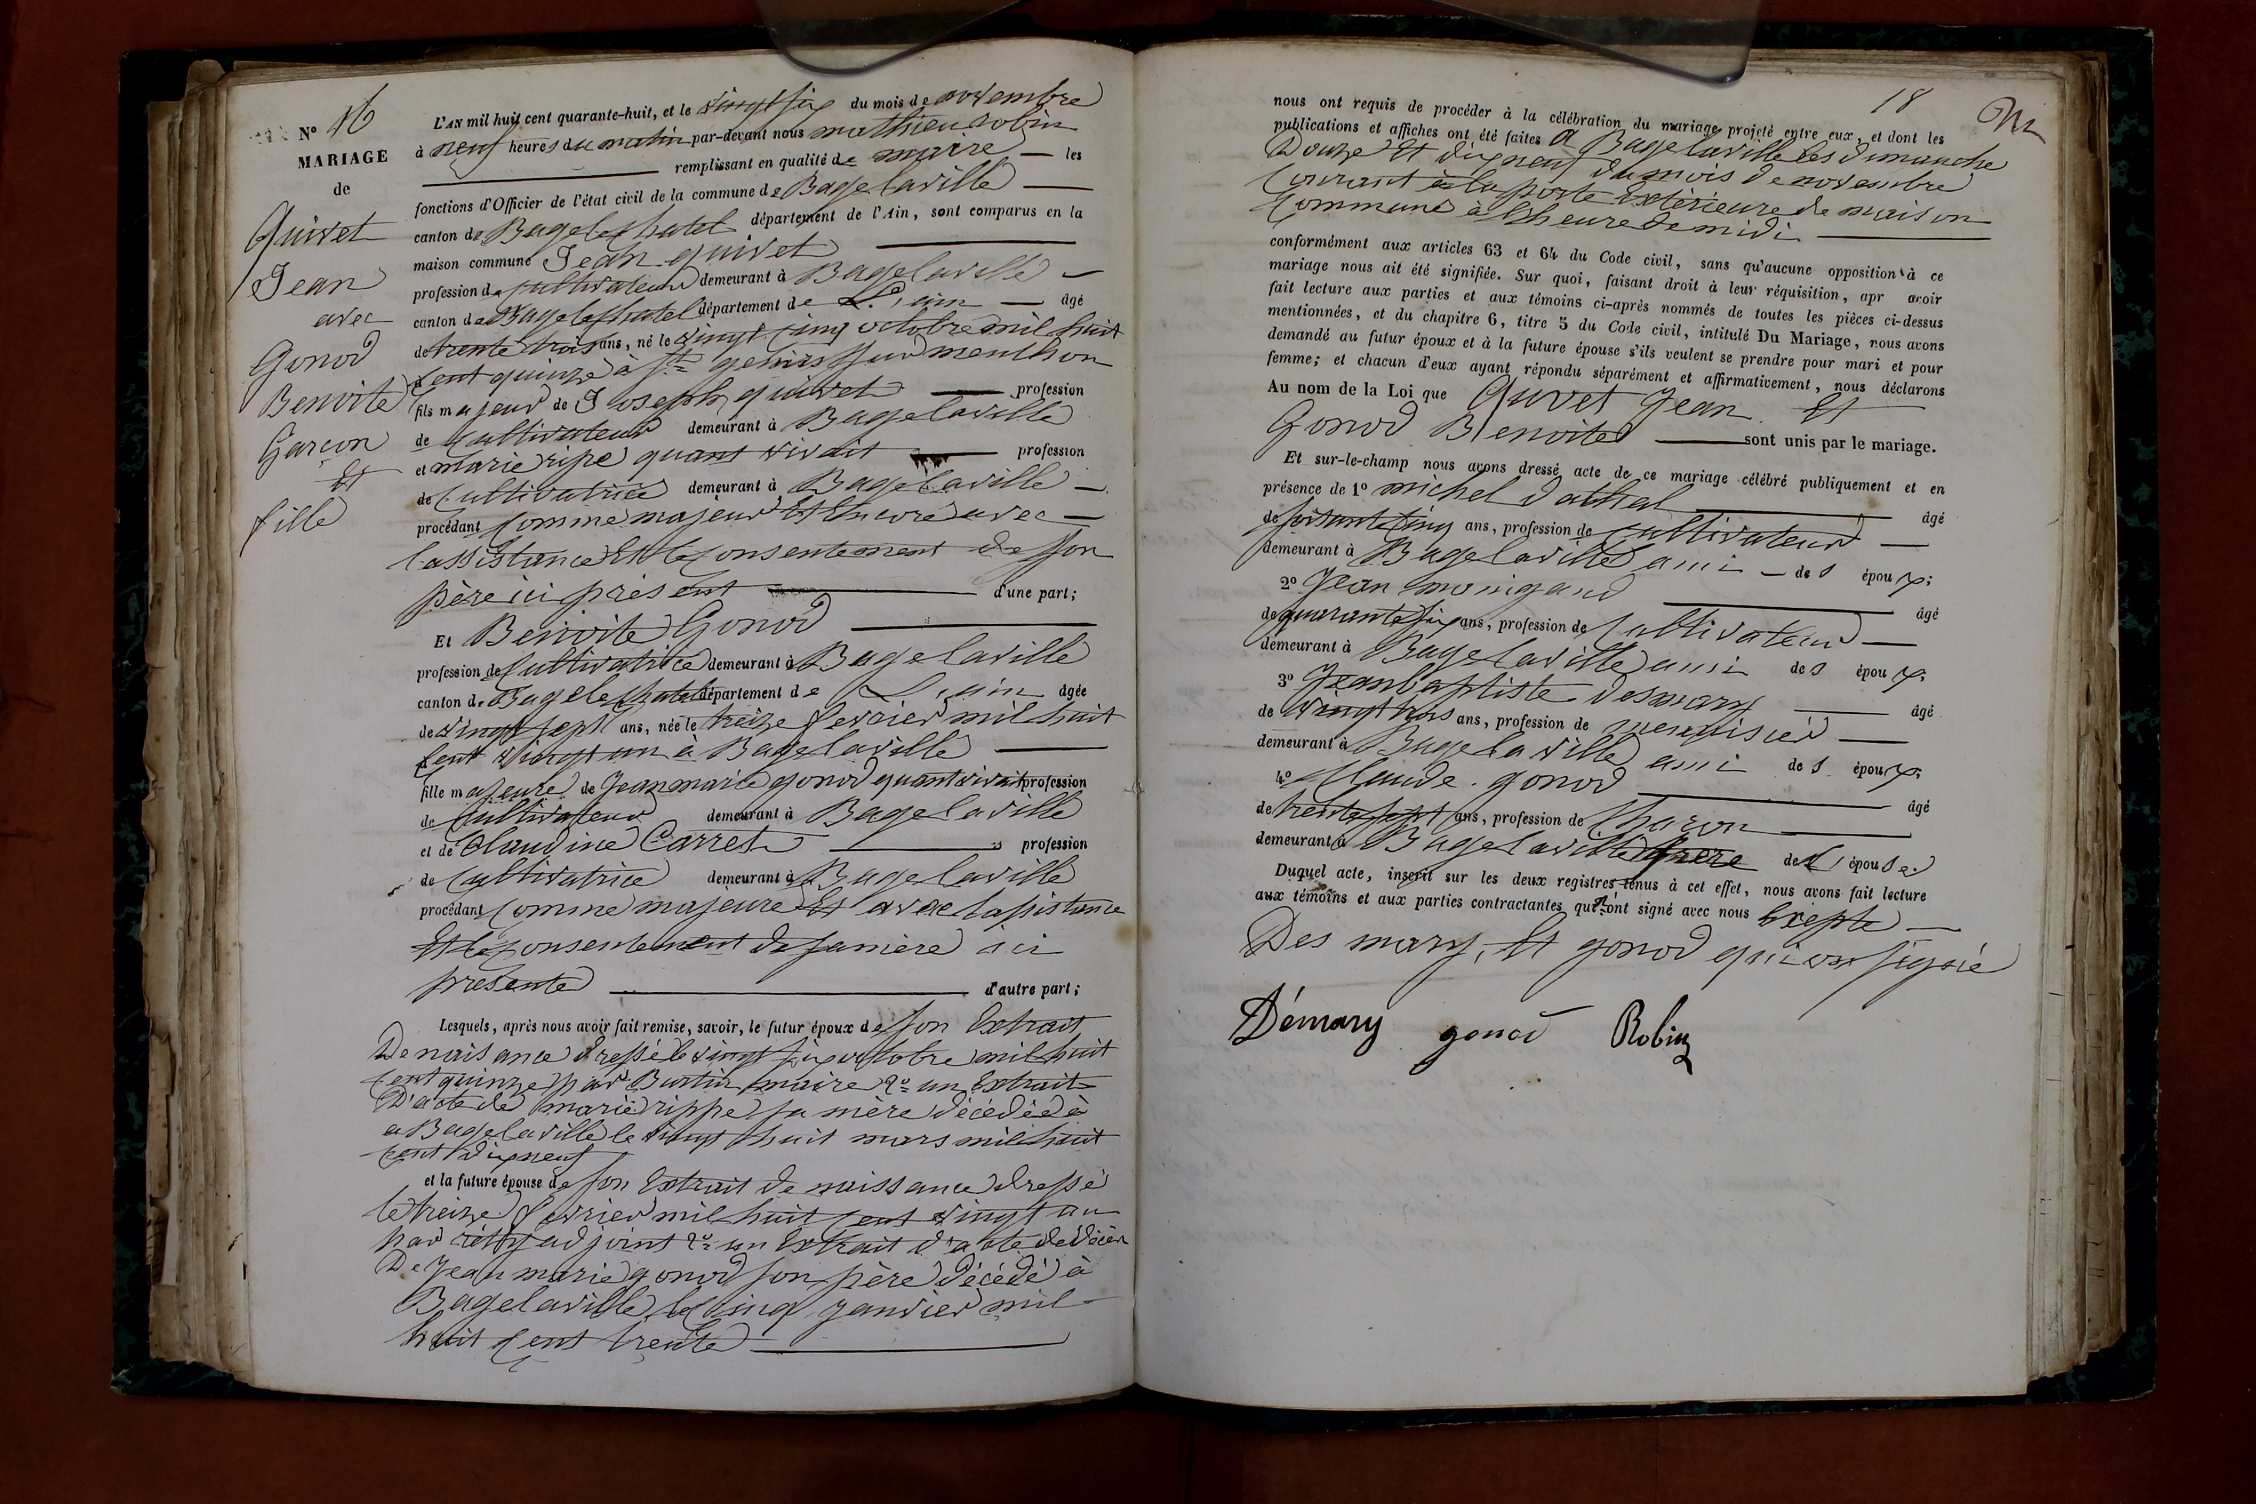 N° 16
MARIAGE
de
Quivet
Jean
avec
Gonod
Benoite
Garcon
Et
fille
L'AN mil huit cent quarante-huit, et le vingt six du mois de novembre
à neuf heures du matin par-devant nous mathieu robin
remplissant en qualité de maire les
fonctions d'Officier de l'état civil de la commune de Bagelaville
canton de Bagelechatel département de l'Ain, sont comparus en la
maison commune Jean quivet
profession de cultivateur demeurant à Bagelaville
canton de Bagelechatel département de L'ain âgé
de trente trois ans, né le vingt cinq octobre mil huit
cent quinze à St genis sur menthon
fils majeur de Joseph quivet profession
de cultivateur demeurant à Bagelaville
et marie ripe quant vivait profession
de cultivatrice demeurant à Bagelaville
procédant comme majeur Et Encore avec
l'assistance Et le consentement de son
père ici présent d'une part;
Et Benoite Gonod
profession de cultivatrice demeurant à Bagelaville
canton de Bagelechatel département de L'ain âgée
de vingt sept ans, née le treize fevrier mil huit
cent vingt un à Bagelaville
fille majeure de Jean marie gonod quant vivait profession
de cultivateur demeurant à Bagelaville
et de Claudine Carret profession
de cultivatrice demeurant à Bagelaville
procédant comme majeure Et avec lassistance
Et le consentement de sa mère ici
presente d'autre part;
Lesquels, après nous avoir fait remise, savoir, le futur époux de son Extrait
De naisance dressé le vingt six octobre mil huit
cent quinze par Burtin maire 2° un Extrait
D'acte de marie rippe sa mère décédée à
a Bagelaville le vingt huit mars mil huit
cent dix neuf
et la future épouse de son Extrait de naissance dressé
le treize fevrier mil huit cent vingt un
par adjoint 2° un Extrait d'acte de décès
De Jean marie gonod son père décédé à
Bagelaville le cinq janvier mil
huit cent trente
18
nous ont requis de procéder à la célébration du mariage projeté entre eux, et dont les
publications et affiches ont été faites a Bagelaville les dimanche
Douze Et dix neuf du mois de novembre
Courant à la porte Extérieure de maison
Commune à l'heure de midi
conformément aux articles 63 et 64 du Code civil, sans qu'aucune opposition à ce
mariage nous ait été signifiée. Sur quoi, faisant droit à leur réquisition, apr avoir
fait lecture aux parties et aux témoins ci-après nommés de toutes les pièces ci-dessus
mentionnées, et du chapitre 6, titre 5 du Code civil, intitulé Du Mariage, nous avons
demandé au futur époux et à la future épouse s'ils veulent se prendre pour mari et pour
femme; et chacun d'eux ayant répondu séparément et affirmativement, nous déclarons
Au nom de la Loi que Quvet Jean Et
Gonod Benoite sont unis par le mariage.
Et sur-le-champ nous avons dressé acte de ce mariage célébré publiquement et en
présence de 1° michel âgé
de soisante cinq ans, profession de cultivateur
demeurant à Bagelaville ami des époux;
2° Jean moingand âgé
de quarante six ans, profession de cultivateur
demeurant à Bagelaville ami des époux;
3° Jeanbaptiste desmary âgé
de vingt trois ans, profession de menuisier
demeurant à Bagelaville ami des époux;
4° Claude gonod âgé
de trente sept ans, profession de charon
demeurant à Bagelaville frère de l'épouse
Duquel acte, inscrit sur les deux registres tenus à cet effet, nous avons fait lecture
aux témoins et aux parties contractantes qui n'ont signé avec nous Exepte
Des mary, Et gonod qui on signié
Démary gonod Robin